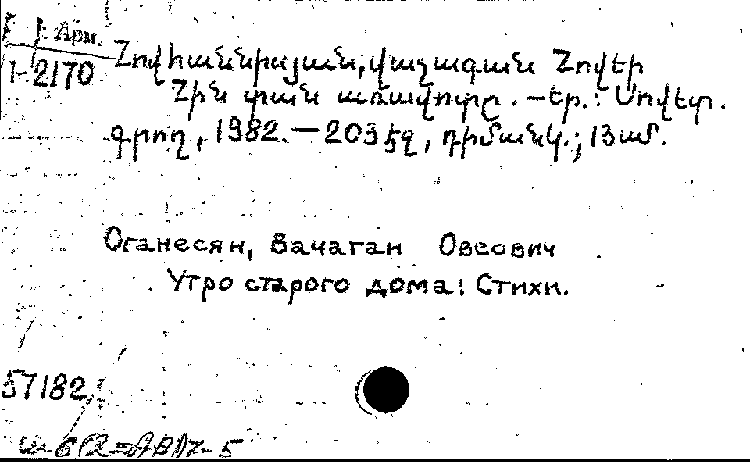 Арм.
1-2170
Հովհաննիսյան, Վաչագան Հովեի
Հին տան առավոտը. – Եր.: Սովետ.
գրող, 1982. — 203 էջ, դիմանկ.; 13 սմ.
Оганесян, Вачаган Овсович
Утро старого дома: Стихи.
57182